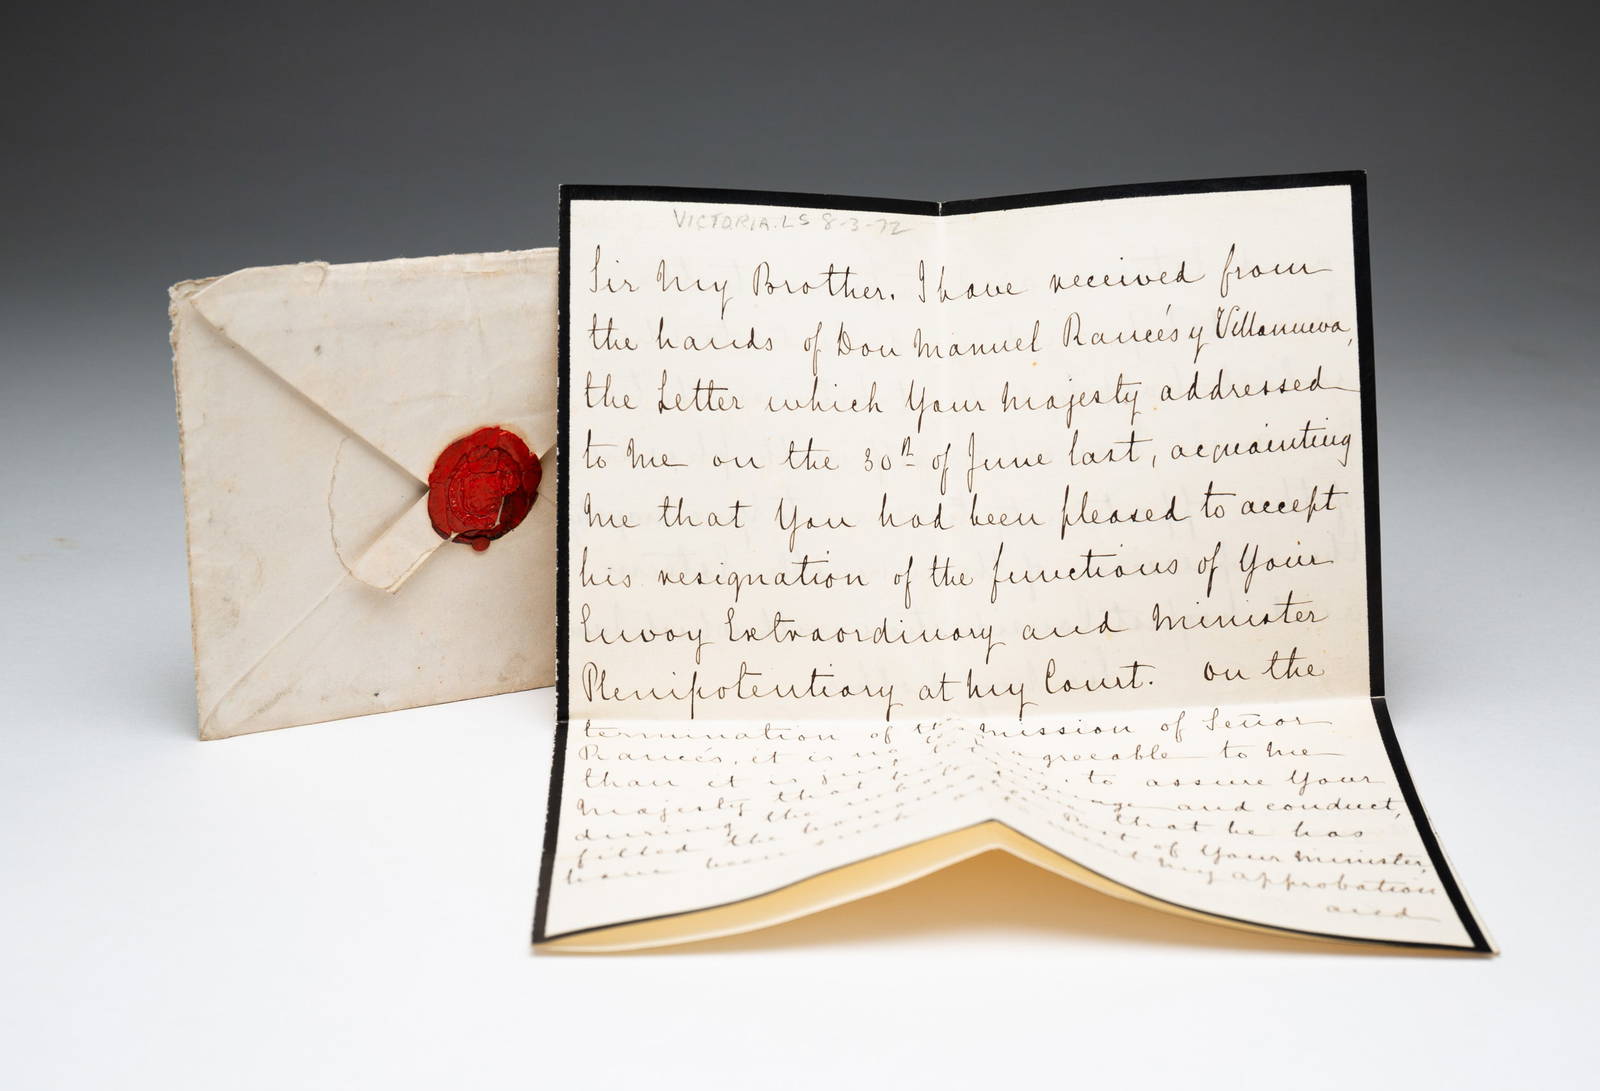 VICTORIA. LS 8-3-72
Sir My Brother. I have received from
the hands of Don Manuel Rancés y Villanueva,
the Letter which Your Majesty addressed
to Me on the 30th of June last, acquainting
Me that You had been pleased to accept
his resignation of the functions of Your
Envoy Extraordinary and Minister
Plenipotentiary at My Court. On the
termination of the mission of Señor
Rancés, it is no agreeable to Me
than it is to assure Your
Majesty that and conduct,
during the that he has
filled the of Your Minister,
have been My approbation
and